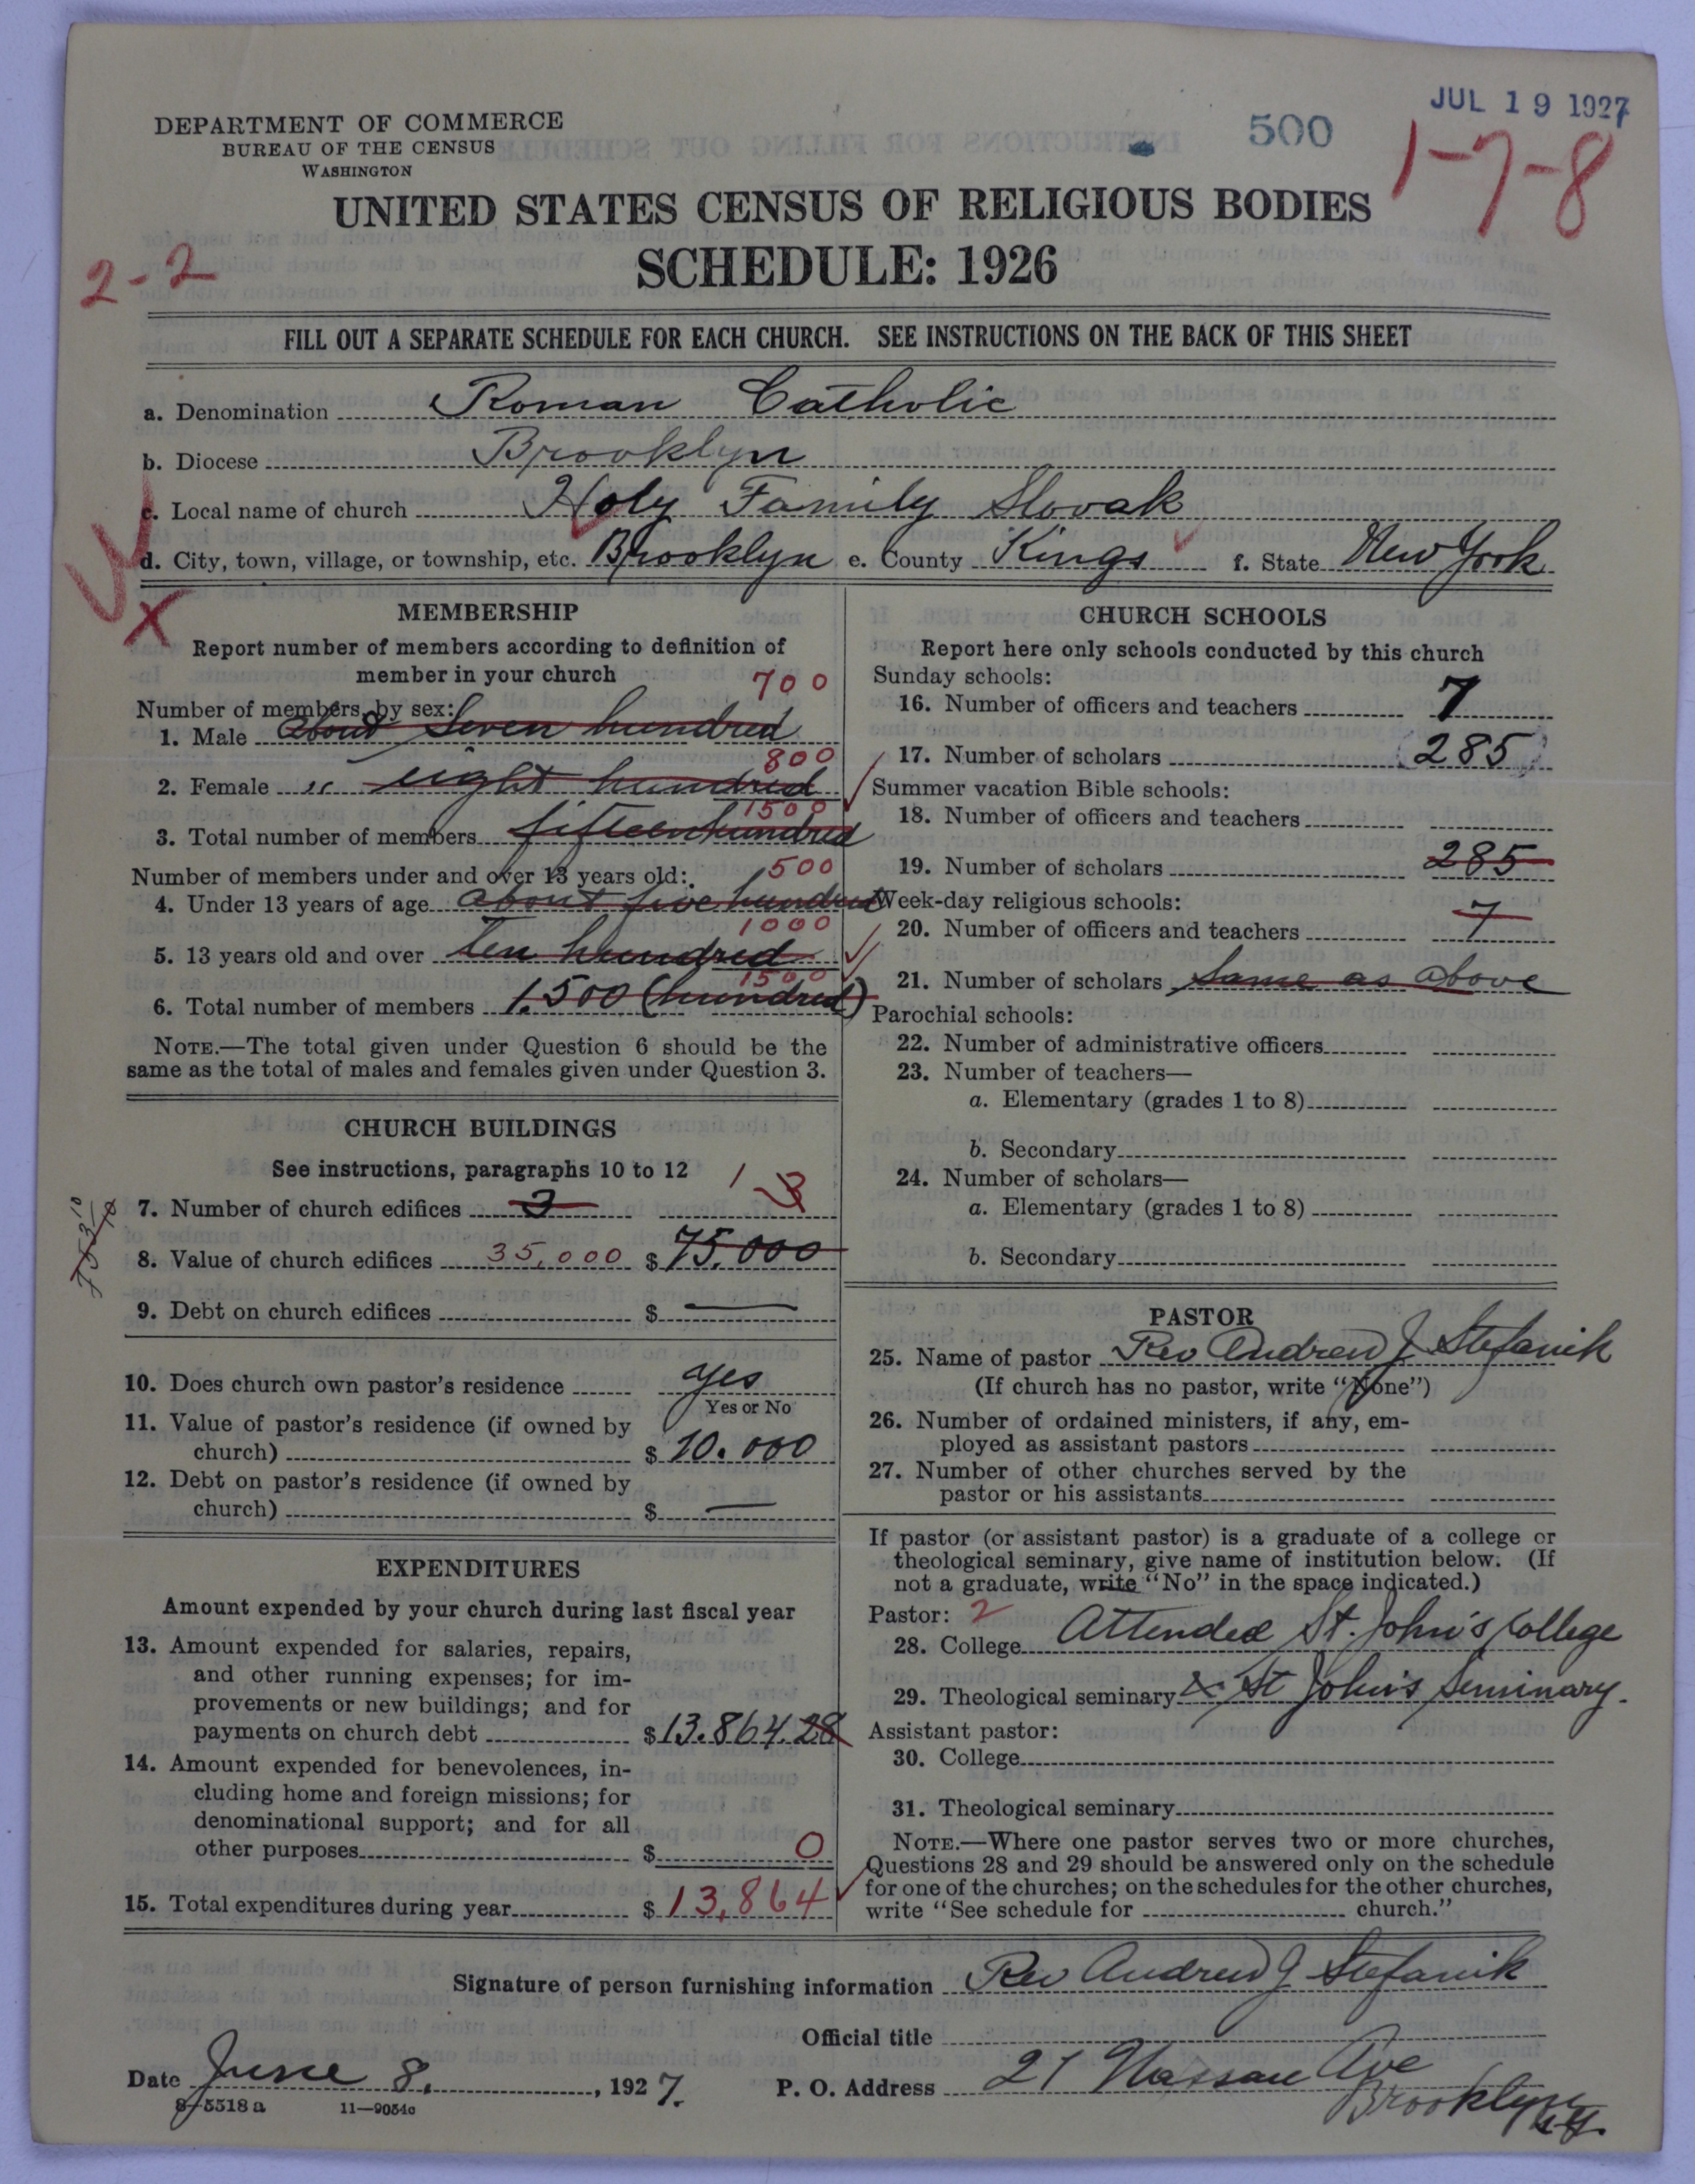 JUL 19 1927
500
1-7-8
DEPARTMENT OF COMMERCE
BUREAU OF THE CENSUS
WASHINGTON
UNITED STATES CENSUS OF RELIGIOUS BODIES
SCHEDULE: 1926
2-2
FILL OUT A SEPARATE SCHEDULE FOR EACH CHURCH. SEE INSTRUCTIONS ON THE BACK OF THIS SHEET
a. Denomination Roman Catholic
b. Diocese Brooklyn
c. Local name of church Holy Family Slovak
d. City, town, village, or township, etc. Brooklyn e. County Kings f. State New York
X
MEMBERSHIP
Report number of members according to definition of
member in your church
700
Number of members, by sex:
1. Male about seven hundred
800
2. Female " eight hundred
1500
3. Total number of members fifteen hundred
Number of members under and over 13 years old:
500
4. Under 13 years of age about five hundred
1000
5. 13 years old and over ten hundred
1500
6. Total number of members 1.500 (hundred)
NOTE.—The total given under Question 6 should be the
same as the total of males and females given under Question 3.
CHURCH BUILDINGS
See instructions, paragraphs 10 to 12
1 3
7. Number of church edifices 3
8. Value of church edifices 35,000 $ 75.000
9. Debt on church edifices $ —
10. Does church own pastor's residence yes
Yes or No
11. Value of pastor's residence (if owned by
church) $ 10.000
12. Debt on pastor's residence (if owned by
church) $ —
EXPENDITURES
Amount expended by your church during last fiscal year
13. Amount expended for salaries, repairs,
and other running expenses; for im-
provements or new buildings; and for
payments on church debt $ 13.864.28
14. Amount expended for benevolences, in-
cluding home and foreign missions; for
denominational support; and for all
other purposes $ 0
15. Total expenditures during year $ 13,864
CHURCH SCHOOLS
Report here only schools conducted by this church
Sunday schools:
16. Number of officers and teachers 7
17. Number of scholars 285
Summer vacation Bible schools:
18. Number of officers and teachers
19. Number of scholars 285
Week-day religious schools:
20. Number of officers and teachers 7
21. Number of scholars same as above
Parochial schools:
22. Number of administrative officers
23. Number of teachers—
a. Elementary (grades 1 to 8)
b. Secondary
24. Number of scholars—
a. Elementary (grades 1 to 8)
b. Secondary
PASTOR
25. Name of pastor Rev Andrew J Stefanik
(If church has no pastor, write "None")
26. Number of ordained ministers, if any, em-
ployed as assistant pastors
27. Number of other churches served by the
pastor or his assistants
If pastor (or assistant pastor) is a graduate of a college or
theological seminary, give name of institution below. (If
not a graduate, write "No" in the space indicated.)
Pastor: 2
28. College Attended St. John's College
29. Theological seminary & St John's Seminary.
Assistant pastor:
30. College
31. Theological seminary
NOTE.—Where one pastor serves two or more churches,
Questions 28 and 29 should be answered only on the schedule
for one of the churches; on the schedules for the other churches,
write "See schedule for church."
Signature of person furnishing information Rev Andrew J Stefanik
Official title
Date June 8, 1927. P. O. Address 21 Nassau Ave
Brooklyn N.Y.
8-5518 a 11—9054c